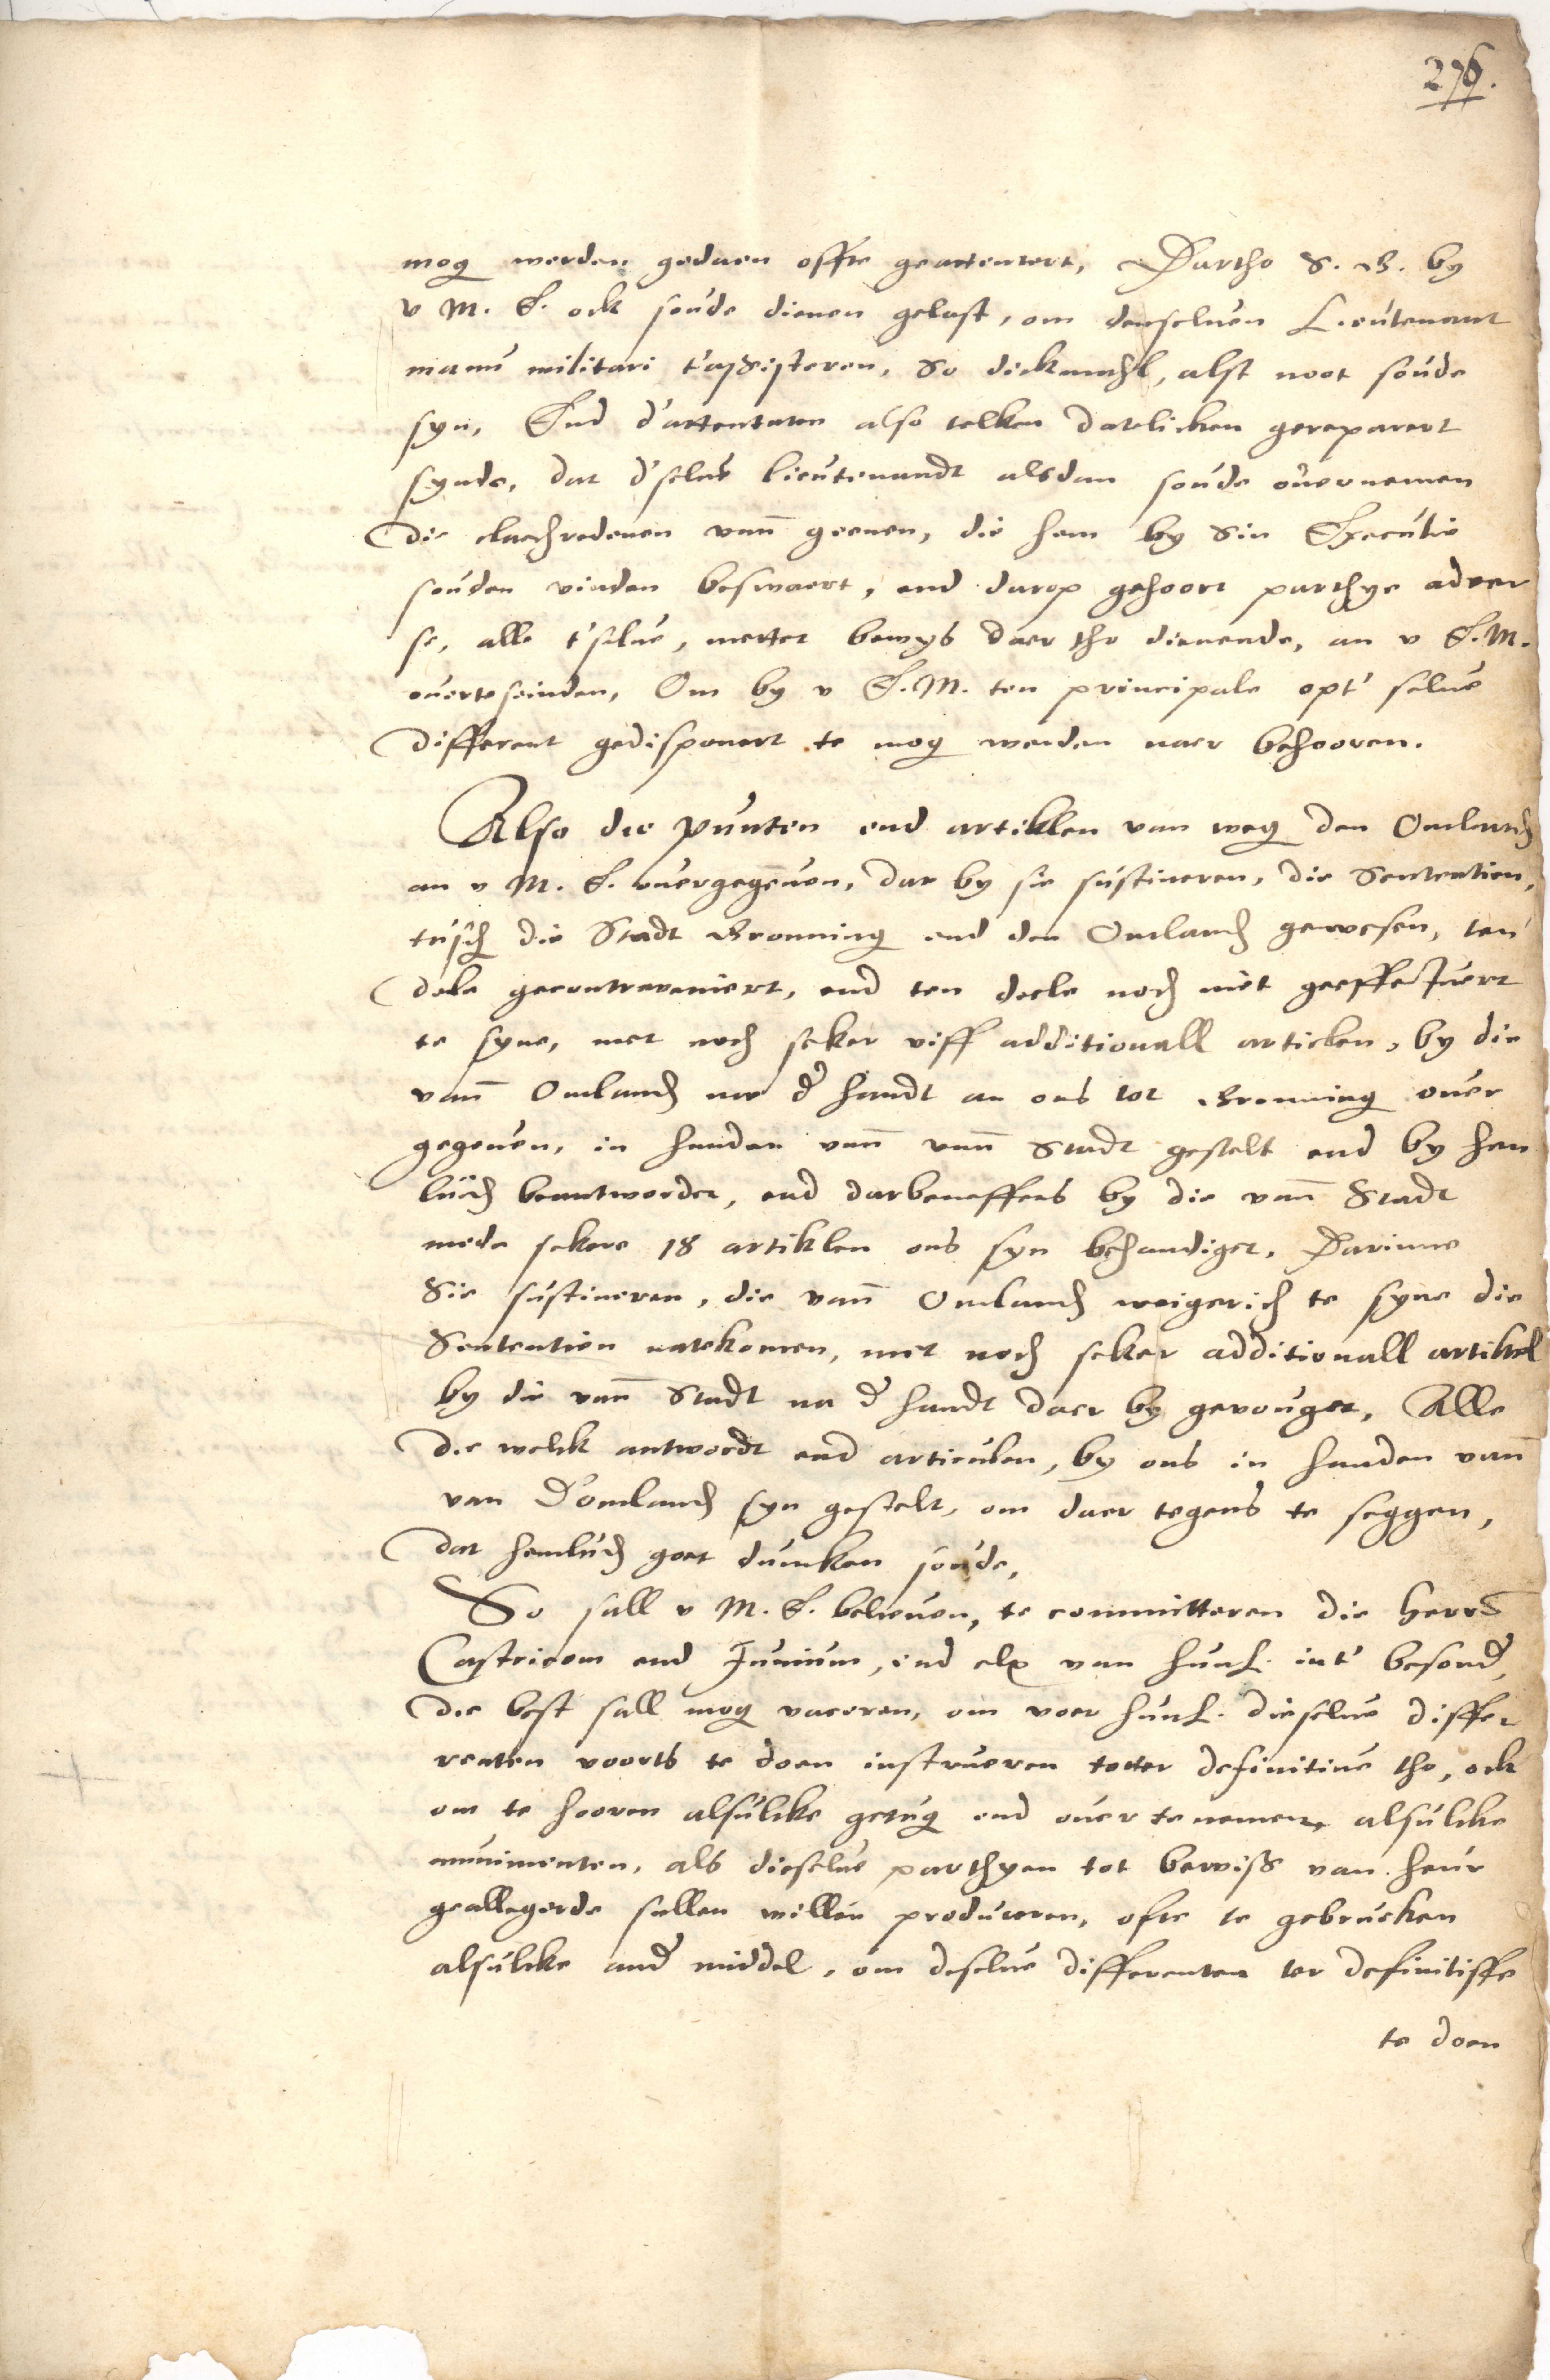 276.
mog werden gedaen offte geattentert, Dartho S. G. by
v M. E. ock soude dienen gelast, om denseluen Lieutenant
manu militari t'assisteren, So dickmahl, alst noot soude
syn, End d'attentaten also telken datelicken gereparert
synde, dat d'selue lieutenandt alsdan soude ouernemen
die clachredenen vann geenen, die hem by Sin Executie
souden vinden beswaert, end darop gehoort parthye adver
se, alle t'selue, metter bewys daer tho dienende, an v E. M.
ouerteseinden, Om by v E. M. ten principale opt' selue
different gedisponert te mog werden naer behooren.
Also die punten end artiklen van weg den Omland
an v M. E. ouergegeuen, dar by sie sustineren, die Sententien,
tusch die Stadt Gronning end den Omland gewesen, ten
dele gecontraveniert, end ten deele noch niet geeffectuert
te syne, met noch seker viff additionall articlen, by die
vann Omland nae d' handt an ons tot Gronning ouer
gegeuen, in handen vann vann Stadt gestelt end by hen
luid beantwordet, end darbeneffens by die vann Stadt
mede sekere 18 artiklen ons syn behandiget, Darinne
Sie sustineren, die vann Omland weigerich te syne die
Sententien natekomen, met noch seker additionall artikel
by die vann Stadt na d' handt daer by gevouget, Alle
die welck antwordt end articulen, by ons in handen vann
van D'omland syn gestelt, om daer tegens te seggen,
dat hemluid goet duncken soude,
So sall v M. E. belieuen, te committeren die Herrn
Castricom end Junium, end elx van hunl. int' besond,
die best sall mog vaceren, om voer hunl. dieselue differ
renten voorts te doen instrueren totter definitiue tho, ock
om te hooren alsulcke getug end ouer tenemen, alsulcke
munimenten, als dieselue parthyen tot bewiss van heur
geallegerde sullen willen produceren, ofte te gebrucken
alsulcke and middel, om deselue differenten ter definitiffe
te doen